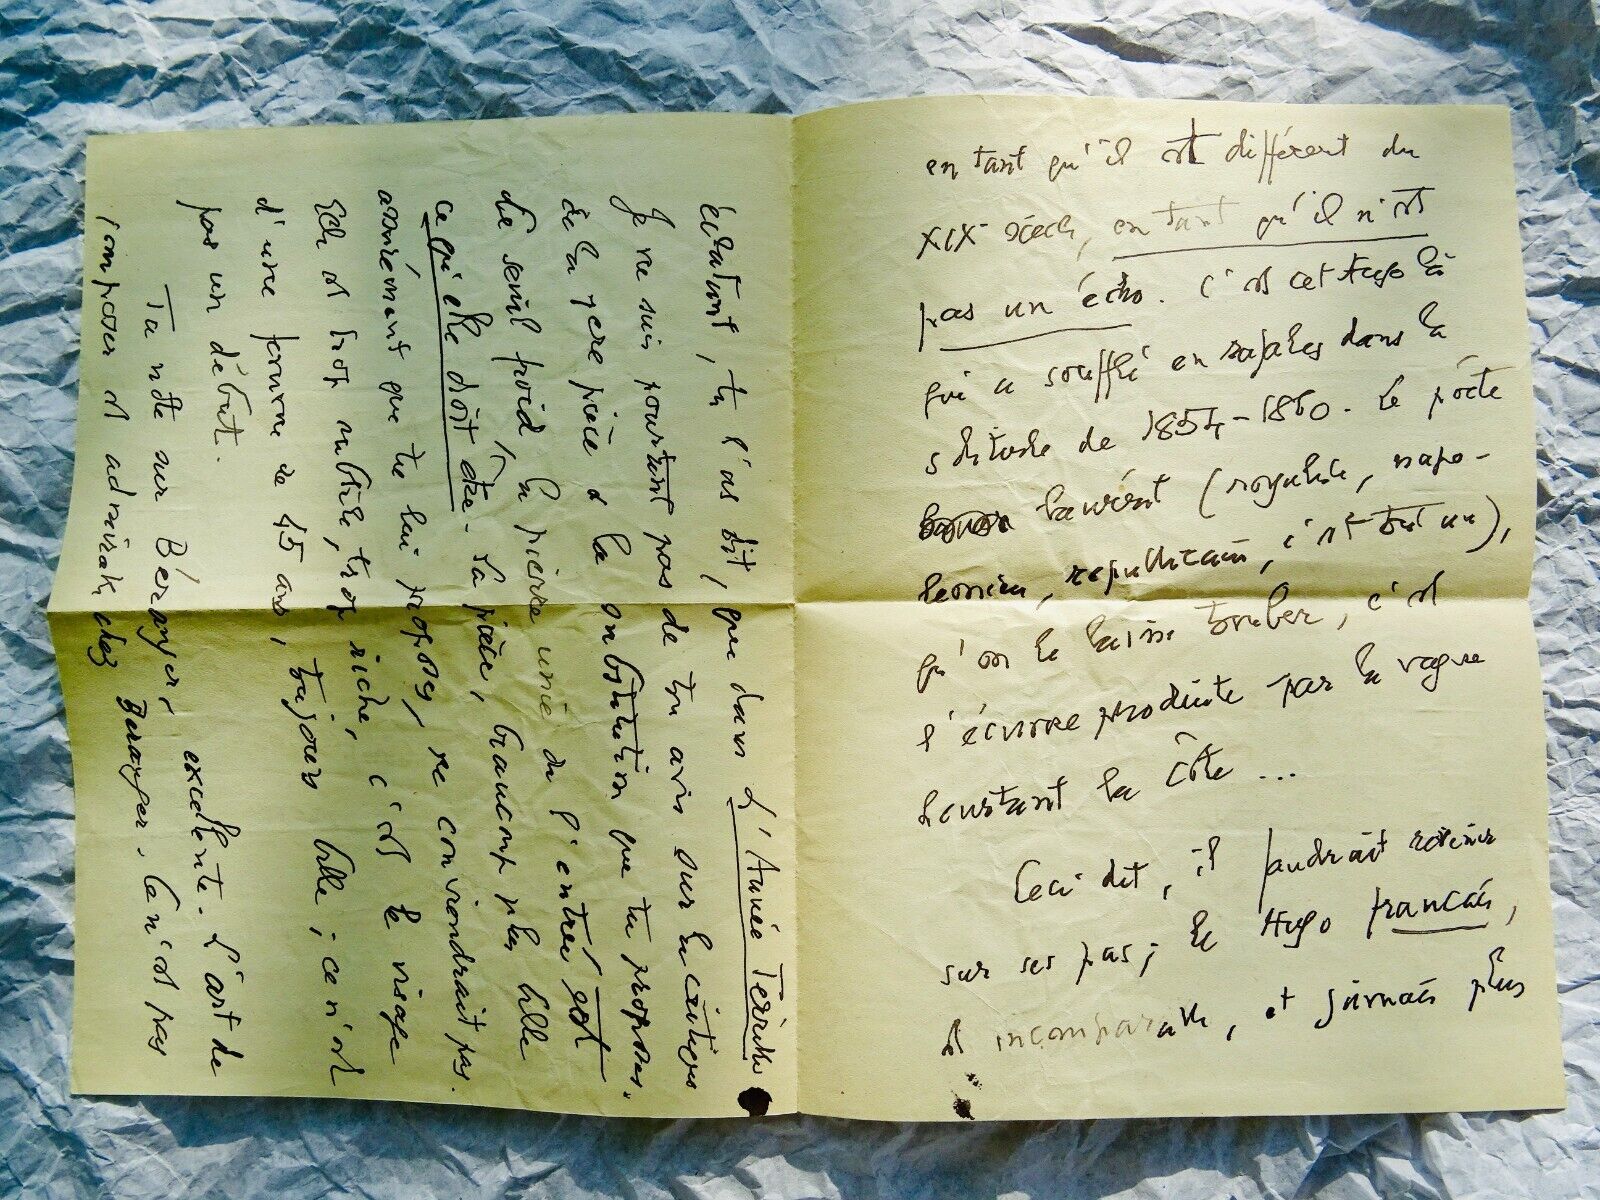 en tant qu'il est différent du
XIXe siècle, en tant qu'il n'est
pas un écho. C'est cet Hugo là
qui a soufflé en rafales dans la
solitude de 1854-1860. Le poète
lauréat (royaliste, napo-
léonien, républicain, c'est tout un),
qu'on le laisse tomber, c'est
l'écume produite par la vague
heurtant la côte ...
Ceci dit, il faudrait revenir
sur ses pas; le Hugo français,
est incomparable, et jamais plus
éclatant, tu l'as dit, que dans L'Année Terrible
Je ne suis pourtant pas de ton avis sur la critique
de la 1ere pièce & la substitution que tu proposes.
Le seuil froid, la pierre unie de l'entrée sont
ce qu'elle doit être. La pièce, beaucoup plus belle
assurément que tu lui proposes, ne conviendrait pas.
Elle est trop subtile, trop riche, c'est le visage
d'une femme de 45 ans, toujours belle; ce n'est
pas un début.
Ta note sur Béranger, excellente. L'art de
composer est admirable chez Béranger. Ce n'est pas